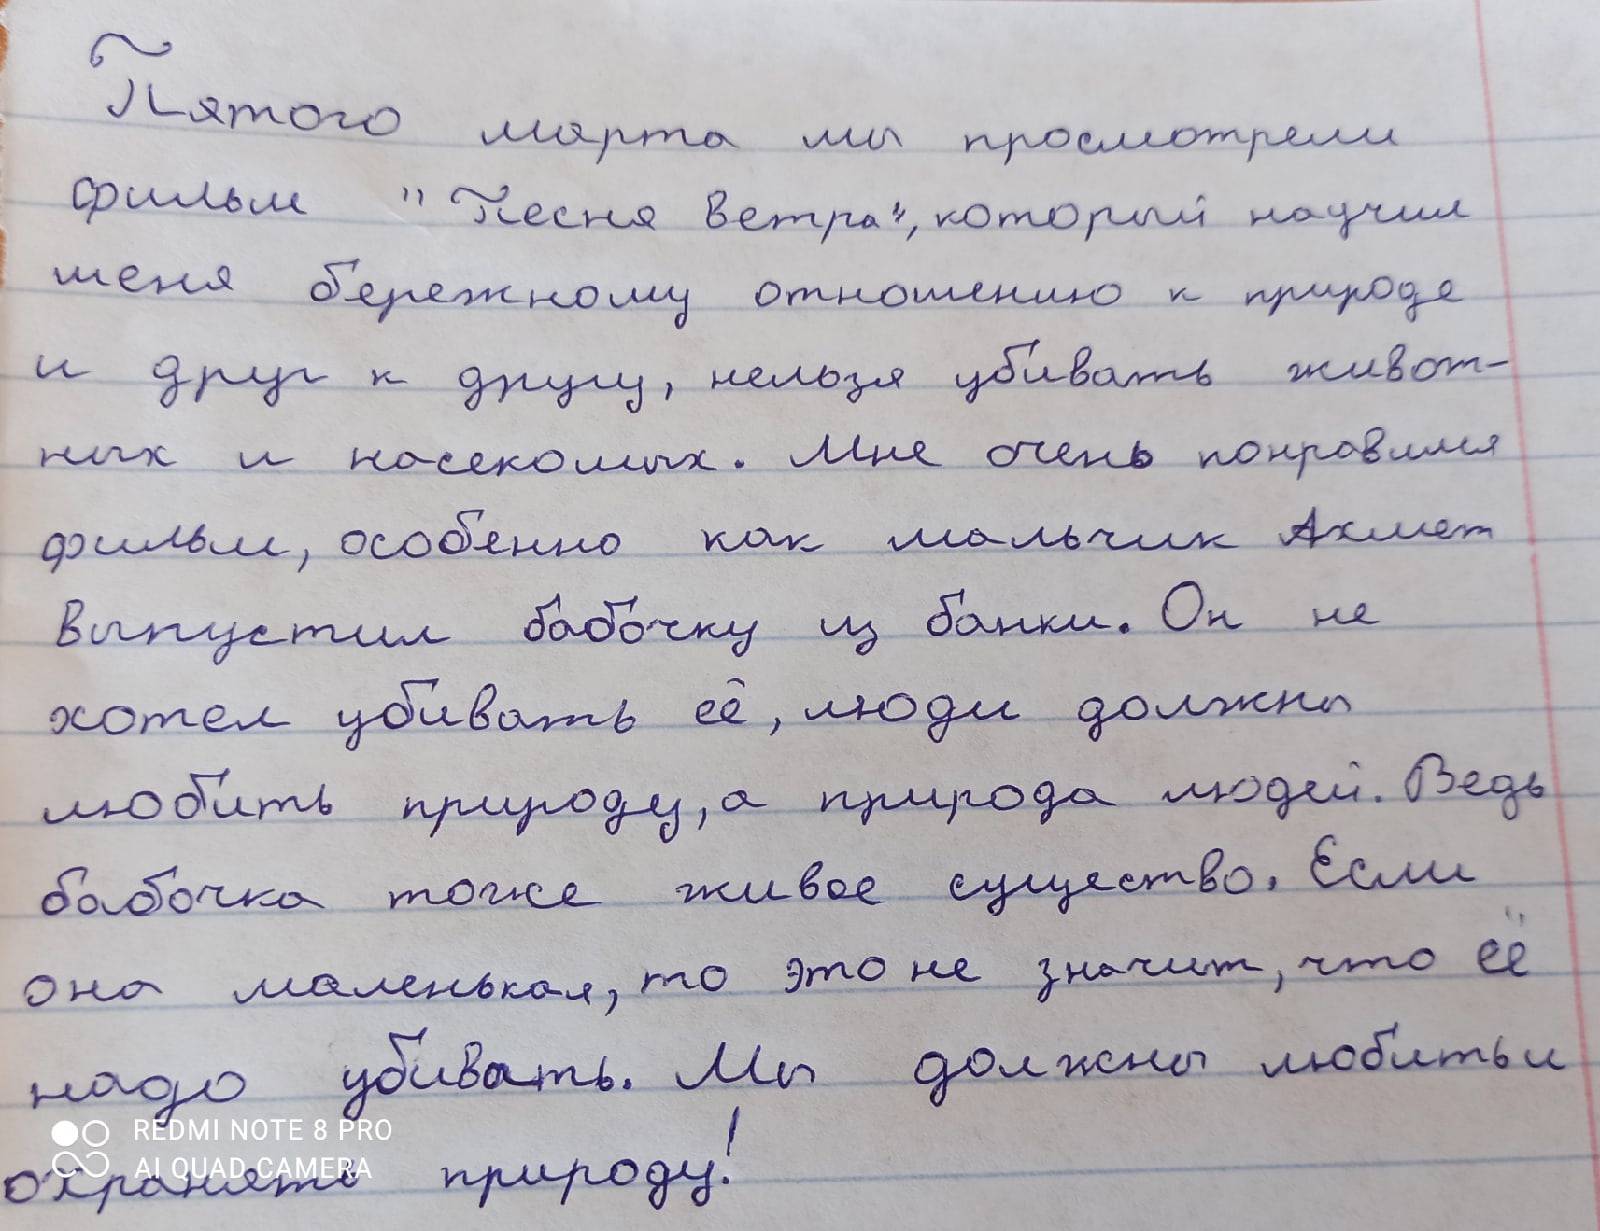 Пятого марта мы просмотрели
фильм "Песня ветра", который научил
меня бережному отношению к природе
и друг к другу, нельзя убивать живот-
ных и насекомых. Мне очень понравился
фильм, особенно как мальчик Ахмет
выпустил бабочку из банки. Он не
хотел убивать её, люди должны
любить природу, а природа людей. Ведь
бабочка тоже живое существо. Если
она маленькая, то это не значит, что её
надо убивать. Мы должны любить и
охранять природу!
REDMI NOTE 8 PRO
AI QUAD CAMERA